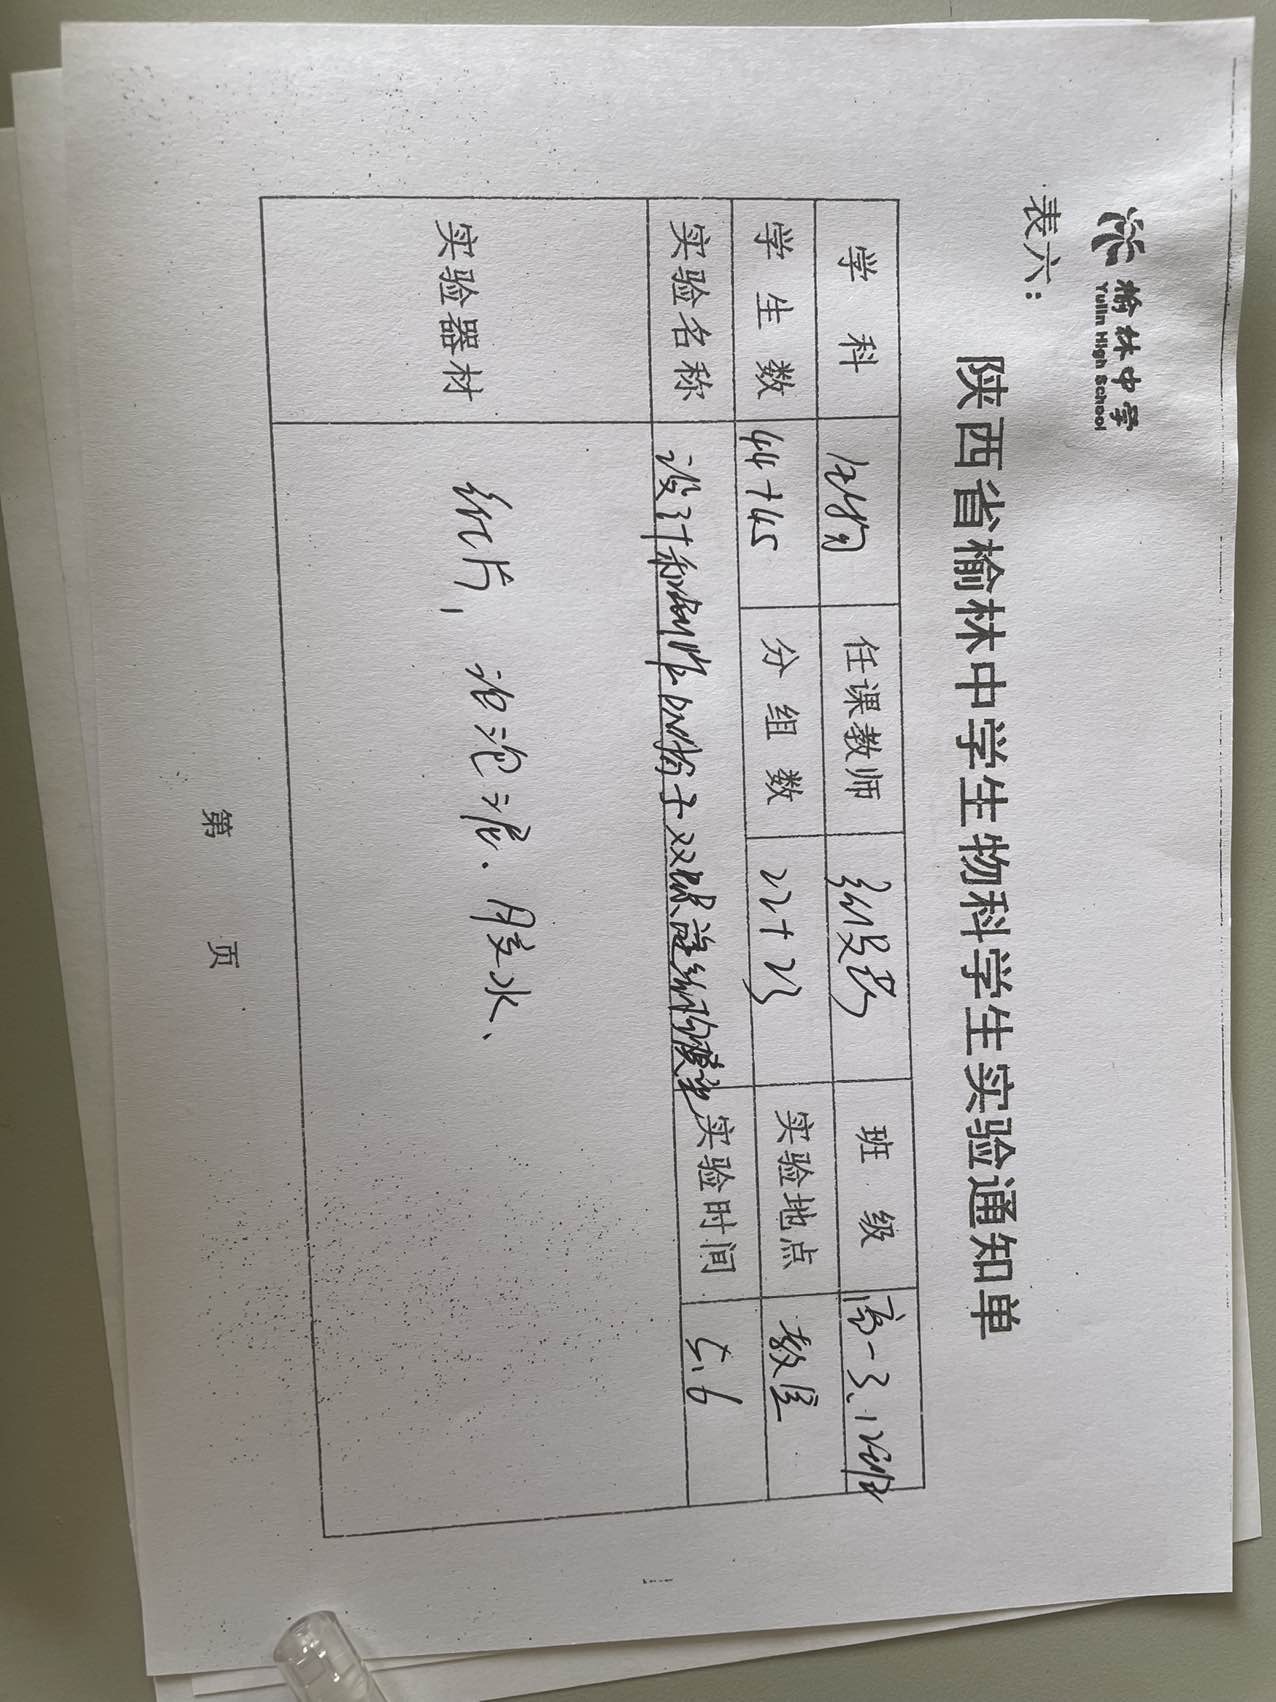 榆林中学
Yulin High School
表六：
陕西省榆林中学生物科学生实验通知单
学 科 生物 任课教师 班 级 高一3、12班
学 生 数 44+45 分 组 数 22+23 实验地点 教室
实验名称 设计和制作DNA分子双螺旋结构模型 实验时间 5.6
实验器材 纸片，泡泡泥、胶水、
第 页